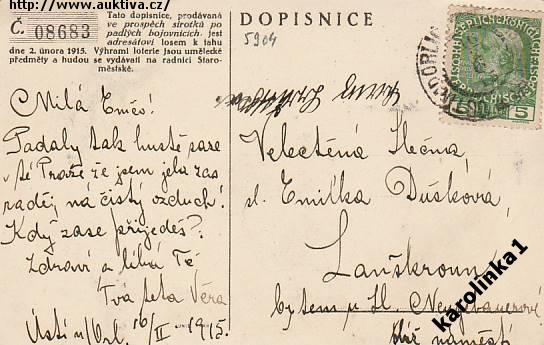 http://www.auktiva.cz/
Č. 08683
Tato dopisnice, prodávaná
ve prospěch sirotků po
padlých bojovnících, jest
adresátovi losem k tahu
dne 2. února 1915. Výhrami loterie jsou umělecké
předměty a budou se vydávati na radnici Staro-
městské.
Milá Emčo!
Padaly tak husté saze
v té Praze že jsem jela zas
raděj na čistý vzduch!
Kdy zase přijedeš?
Zdraví a líbá Tě
Tvá teta Věra
Ústí n/Orl. 16/II 1915.
DOPISNICE
5904
5
Velectěná Slečna,
sl. Emilka Dušková,
Lanškroun
bytem u sl. Neugebauerové
náměstí
karolinka1